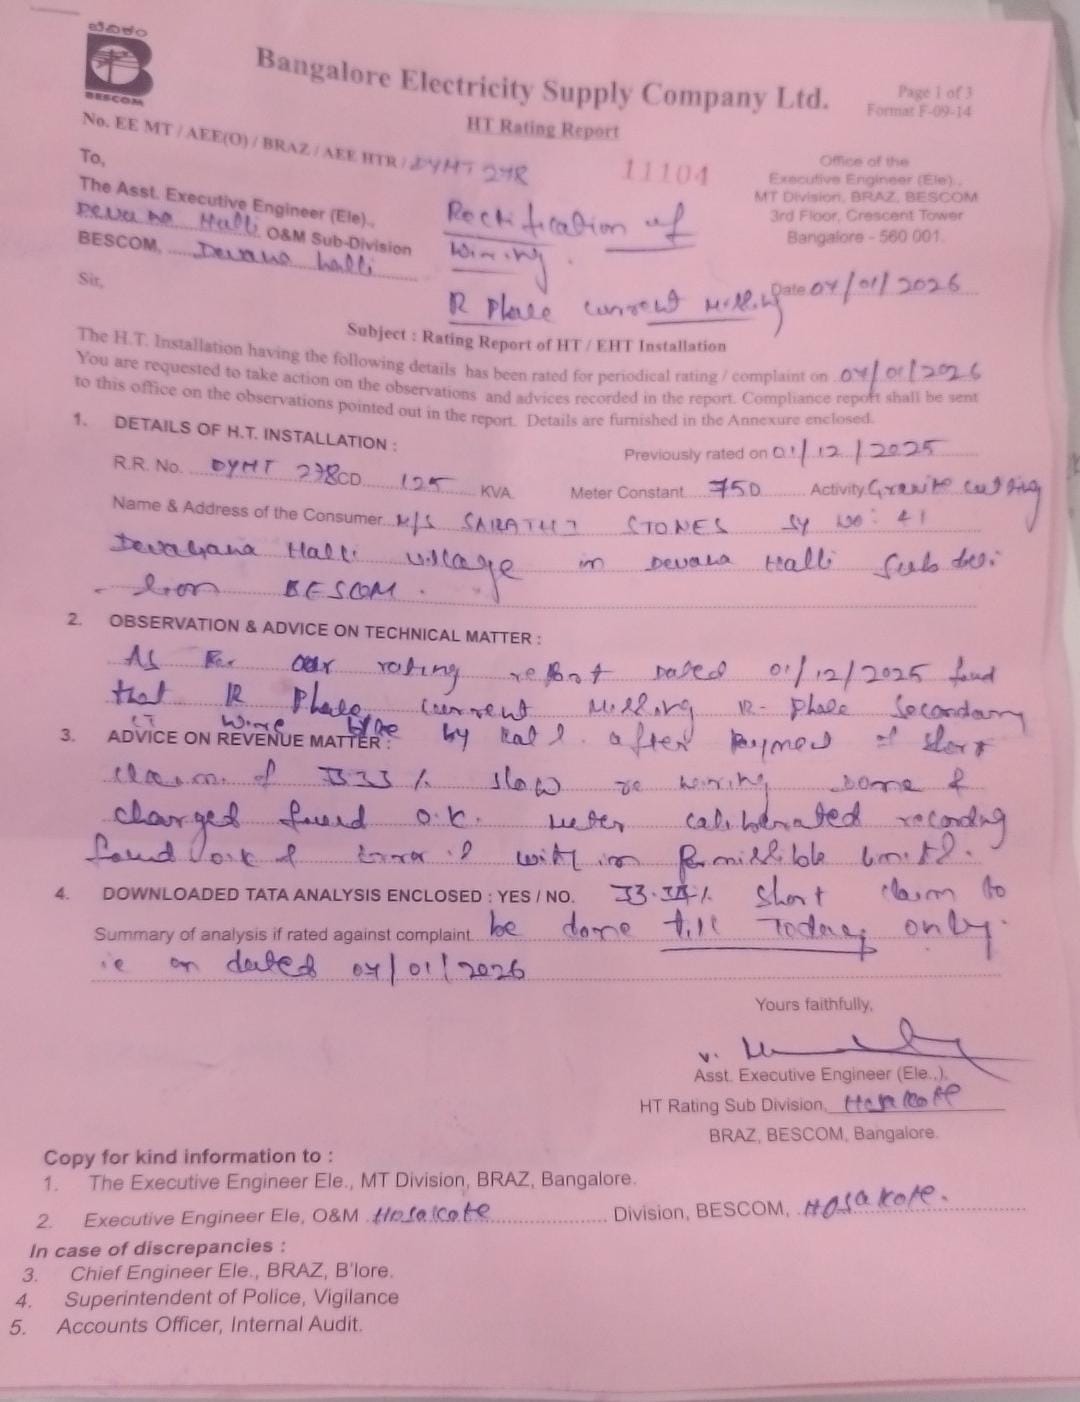 ಬೆವಿಕಂ
BESCOM
Bangalore Electricity Supply Company Ltd.
Page 1 of 3
Format F-09-14
HT Rating Report
No. EE MT / AEE(O) / BRAZ / AEE HTR / DYMT 278
11104
To,
The Asst. Executive Engineer (Ele).,
Devana Halli O&M Sub-Division
BESCOM, Devana halli
Office of the
Executive Engineer (Ele).,
MT Division, BRAZ, BESCOM
3rd Floor, Crescent Tower
Bangalore - 560 001.
Rectification of
Wiring.
R Phase current Missing
Sir,
Date 07/01/2026
Subject : Rating Report of HT / EHT Installation
The H.T. Installation having the following details has been rated for periodical rating / complaint on 07/01/2026
You are requested to take action on the observations and advices recorded in the report. Compliance report shall be sent
to this office on the observations pointed out in the report. Details are furnished in the Annexure enclosed.
1. DETAILS OF H.T. INSTALLATION :
Previously rated on 01/12/2025
R.R. No. DYHT 278 CD 125 KVA Meter Constant 750 Activity Granite cutting
Name & Address of the Consumer M/S SARATHI STONES Sy No: 41
Halli village in Devana Halli Sub
BESCOM.
2. OBSERVATION & ADVICE ON TECHNICAL MATTER :
As Per our rating report Dated 01/12/2025 found
that R Phase current Missing R-Phase Secondary
CT wire by
3. ADVICE ON REVENUE MATTER :
after Payment of short
claim of 333 % slow re wiring Done &
charged found O.K. Meter caliberated recording
found ok & error is with in Permissible limits.
4. DOWNLOADED TATA ANALYSIS ENCLOSED : YES / NO. 33.34% Short claim to
Summary of analysis if rated against complaint be done till Today only.
ie on dated 07/01/2026
Yours faithfully,
Asst. Executive Engineer (Ele.,).
HT Rating Sub Division, Hosakote
BRAZ, BESCOM, Bangalore.
Copy for kind information to :
1. The Executive Engineer Ele., MT Division, BRAZ, Bangalore.
2. Executive Engineer Ele, O&M Hosakote Division, BESCOM, Hosakote.
In case of discrepancies :
3. Chief Engineer Ele., BRAZ, B'lore.
4. Superintendent of Police, Vigilance
5. Accounts Officer, Internal Audit.